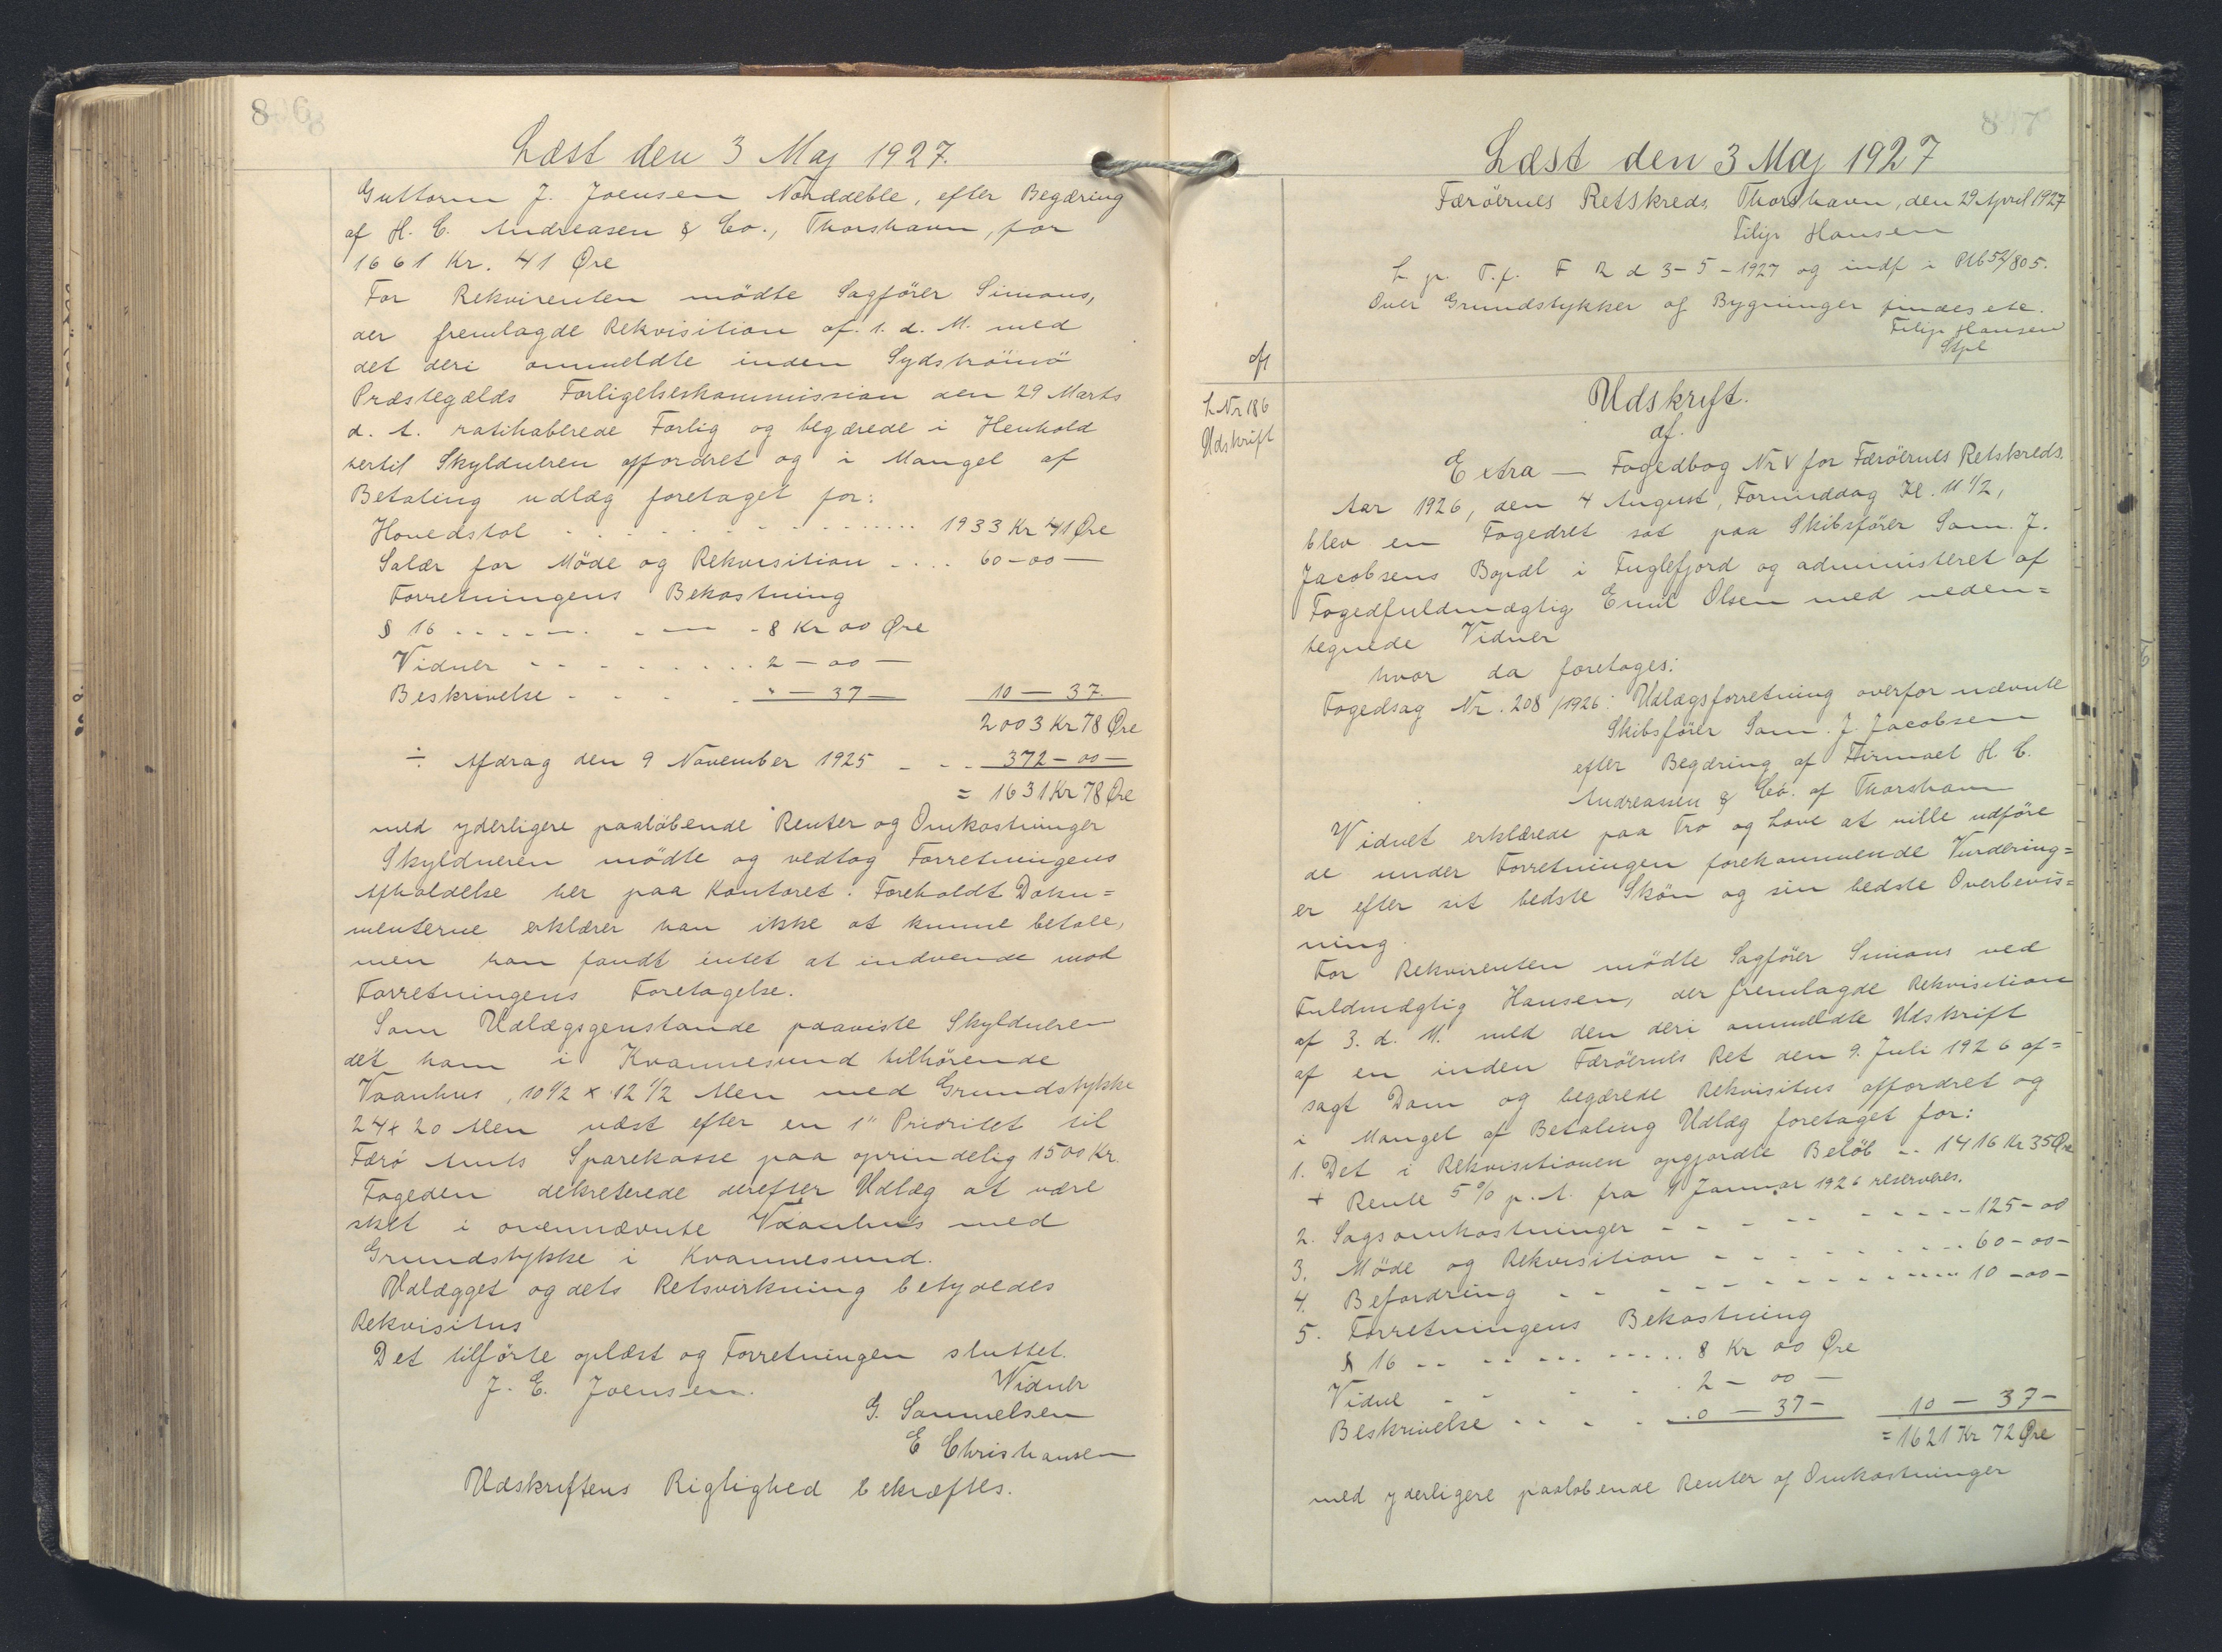 806
Læst den 3 Maj 1927.
Guttorm J. Joensen Norddeble, efter Begæring
af H. C. Andreasen & Co., Thorshavn, for
1661 Kr. 41 Øre
For Rekvirenten mödte Sagförer Simons,
der fremlagde Rekvisition af 1. d. M. med
det deri ommeldte inden Sydströmö
Præstegælds Forligelseskommission den 29 Marts
d. A. ratihaberede Forlig og begærede i Henhold
hertil Skyldneren affordret og i Mangel af
Betaling udlæg foretaget for:
Hovedstol . . . . . . . . . 1933 Kr 41 Øre
Salær for Möde og Rekvisition . . . . 60-00 —
Forretningens Bekostning
§ 16 . . . . . . . . 8 Kr 00 Øre
Vidner . . . . . . . . 2 — 00 —
Beskrivelse . . . . . " — 37 — 10 — 37
2003 Kr 78 Øre
÷ Afdrag den 9 November 1925 - - - 372 - 00 —
= 1631 Kr 78 Øre
med yderligere paaløbende Renter og Omkostninger
Skyldneren mödte og vedtog Forretningens
Afholdelse her paa Kontoret. Foreholdt Doku=
menterne erklærer han ikke at kunne betale,
men han fandt intet at indvende mod
Forretningens Foretagelse.
Som Udlægsgenstande paaviste Skyldneren
det ham i Kvannesund tilhörende
Vaanhus, 10 1/2 x 12 1/2 Alen med Grundstykke
24 x 20 Alen næst efter en 1" Prioritet til
Færö Amts Sparekasse paa oprindelig 1500 Kr.
Fogeden dekreterede derefter Udlæg at være
sket i ovennævnte Vaanhus med
Grundstykke i Kvannesund.
Udlægget og dets Retsvirkning betydedes
Rekvisitus
Det tilførte oplæst og Forretningen sluttet.
J. E. Joensen. Vidner
G. Samuelsen
E Christiansen
Udskriftens Rigtighed bekræftes.
807
Læst den 3 Maj 1927
Færöernes Retskreds, Thorshavn, den 29 April 1927
Filip Hansen
L p. T. f. F R d 3-5-1927 og indf i Ptb 52/805.
Over Grundstykker og Bygninger findes etc.
Filip Hansen
Stpl
L Nr 186
Udskrift
Udskrift.
af.
Extra — Fogedbog Nr V for Færöernes Retskreds.
Aar 1926, den 4 August, Formiddag Kl. 11 1/2,
blev en Fogedret sat paa Skibsfører Sam. J.
Jacobsens Bopæl i Fuglefjord og administeret af
Fogedfuldmægtig Emil Olsen med neden=
tegnede Vidner
hvor da foretoges:
Fogedsag Nr. 208/1926: Udlægsforretning overfor nævnte
Skibsförer Sam. J. Jacobsen
efter Begæring af Firmaet H. C.
Andreassen & Co. af Thorshavn
Vidnet erklærede paa Tro og Love at ville udföre
de under Forretningen forekommende Vurdering=
er efter sit bedste Skön og sin bedste Overbevis=
ning.
For Rekvirenten mödte Sagförer Simons ved
Fuldmægtig Hansen, der fremlagde Rekvisition
af 3. d. M. med den deri ommeldte Udskrift
af en inden Færöernes Ret den 9. Juli 1926 af=
sagt Dom og begærede Rekvisitus affordret og
i Mangel af Betaling Udlæg foretaget for:
1. Det i Rekvisitionen opgjordte Beløb - - 1416 Kr 35 Øre
+ Rente 5 % p. A. fra 1 Januar 1926 reserveres.
2. Sagsomkostninger - - - - - - - 125 - 00
3. Möde og Rekvisition - - - - - - 60 - 00 -
4. Befordring - - - - - - - - - 10 - 00 -
5. Forretningens Bekostning
§ 16 - - - - - - - - 8 Kr 00 Øre
Vidne - - - - 2 — 00 —
Beskrivelse - - - - 0 — 37 - 10 — 37 -
= 1621 Kr 72 Øre
med yderligere paaløbende Renter og Omkostninger